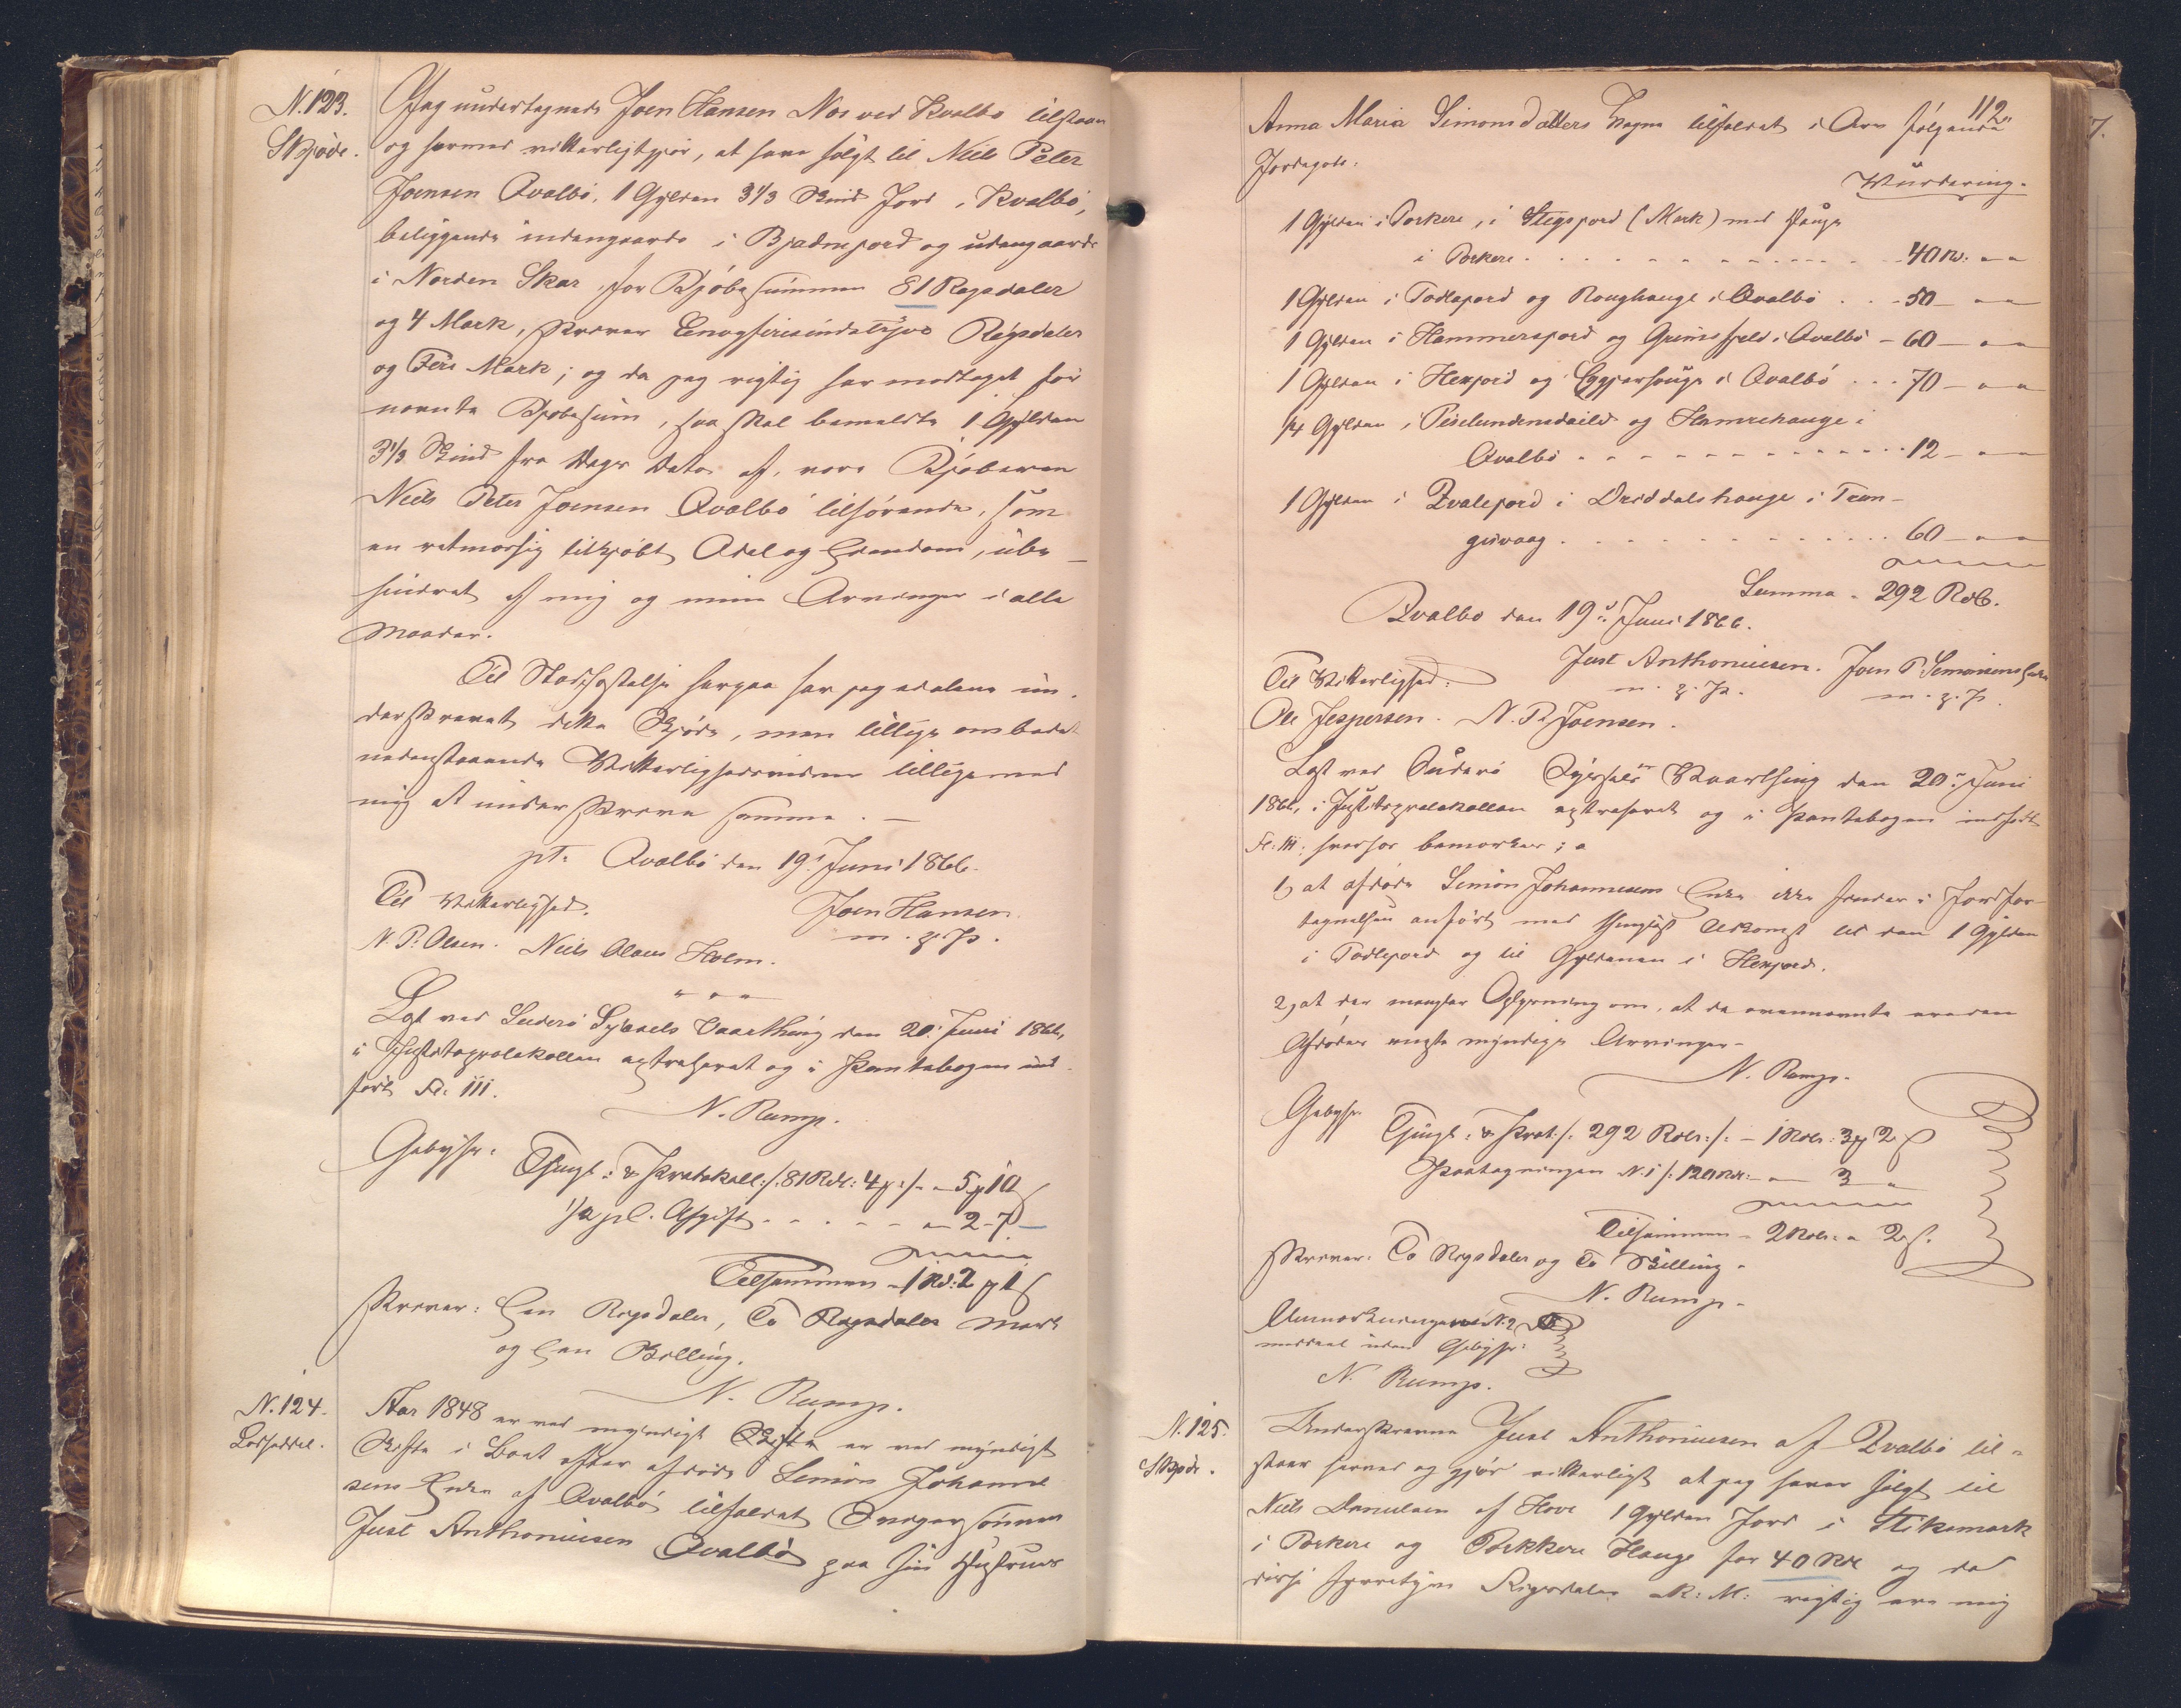 N. 123.
Skjöde.
Jeg undertegnede Joen Hansen Nos ved Kvalbø tilstaar
og hermed vitterligtgjør, at have solgt til Niels Peter
Joensen Qvalbø, 1 Gylden 3 1/3 Skind Jord i Kvalbø,
beliggende indengaards i Bjadnejord og udengaards
i Norden Skar, for Kjøbesummen 81 Rigsdaler
og 4 Mark, skriver Enogfirsindstyve Rigsdaler
og Fire Mark; og da jeg rigtig har modtaget for
nævnte Kjøbesum, saa skal bemeldte 1 Gylden
3 1/3 Skind fra Dags Dato af, være Kjøberen
Niels Peter Joensen Qvalbø tilhørende, som
en retmæssig tilkjøbt Odel og Eiendom, ube-
hindret af mig og mine Arvinger i alle
Maader.
Til Stadfæstelse herpaa har jeg ei alene un-
derskrevet dette Skjøde, men tillige ombedet
nedenstaaende Vitterlighedsvidner tilligemed
mig at underskrive samme. —
pt. Qvalbø den 19 Juni 1866.
Til Vitterlighed. Joen Hansen
N. P. Olsen. Niels Olaus Holm. m. f. P.
Læst ved Suderø Syssels Vaarthing den 20. Juni 1866,
i Justitsprotokollen extraheret og i Pantebogen ind-
ført Fol. 111.
N. Rump.
Gebyhr: Thingl: & Protokoll: /: 81 Rdl: 4 /: — 5 10
1/2 pCt. Afgift - - - - - 2 - 7 —
Tilsammen - 1 Rd: 2 1
skriver: Een Rigsdaler, To Rigsdaler Mark
og Een Skilling.
N. Rump.
N. 124.
Lodseddel.
Aar 1848 er ved myndigt Skifte er ved myndigt
Skifte i Boet efter afdøde Simon Johanne
sens Enke af Qvalbø tilfaldet Svigersønnen
Just Anthoniusen Qvalbø paa sin Hustrues
112.
Anna Maria Simonsdatters Vegne tilfaldet i Arv følgende
Jordegods:
Vurdering.
1 Gylden i Porkere, i Stegsjord (Mark) med Hauge
i Porkere. . . . . 40 Rd: " "
1 Gylden i Todlejord og Roughauge i Qvalbø . . - 50 — " "
1 Gylden i Hammersjord og Grimsfjeld i Qvalbø - 60 — " "
1 Gylden i Hexjord og Eggjarhauge i Qvalbø . . . 70 — " "
1/4 Gylden i Piselundensdeild og Hamrehauge i
Qvalbø . . . . . 12 — " "
1 Gylden i Qvalejord i Dreddalshauge i Tran-
gisvaag . . . . . 60 — " "
Summa - 292 Rdl.
Qvalbø den 19 Juni 1866.
Just Anthoniusen. Joen P. Simonsens Enke
Til Vitterlighed: m. f. P. m. f. P.
Ole Jespersen. N. P. Joensen.
Læst ved Suderø Syssels Vaarthing den 20 Juni
1866, i Justitsprotokollen extraheret og i Pantebogen indført
Fol: 111. hvorhos bemærkes; "
1, at afdøde Simon Johannesens Enke ikke findes i Jordfor-
tegnelsen anført med thinglæst Adkomst til den 1 Gylden
i Todlejord og til Gyldenen i Hexjord.
2, at der mangler Oplysning om, at de ovennævnte ere den
Afdødes eneste myndige Arvinger.
N. Rump.
Gebyhr
Thingl: & Prot: /: 292 Rdlr: /: - 1 Rdlr: 3 2
Paategningen N. 1 /: 120 Rdl: — 3 "
Tilsammen - 2 Rdlr: " 2 s.
skriver: To Rigsdaler og To Skilling.
N. Rump.
Anmærkningen N: 2
meddeelt uden Gebyhr:
N. Rump.
N. 125.
Skjöde.
Underskrevne Just Anthoniusen af Qvalbø til-
staar herved og gjør vitterligt at jeg haver solgt til
Niels Danielsen af Hove 1 Gylden Jord i Stiksmark
i Porkere og Porkkere Hauge for 40 Rdl og da
disse fyrretyve Rigsdaler R: M: rigtig ere mig